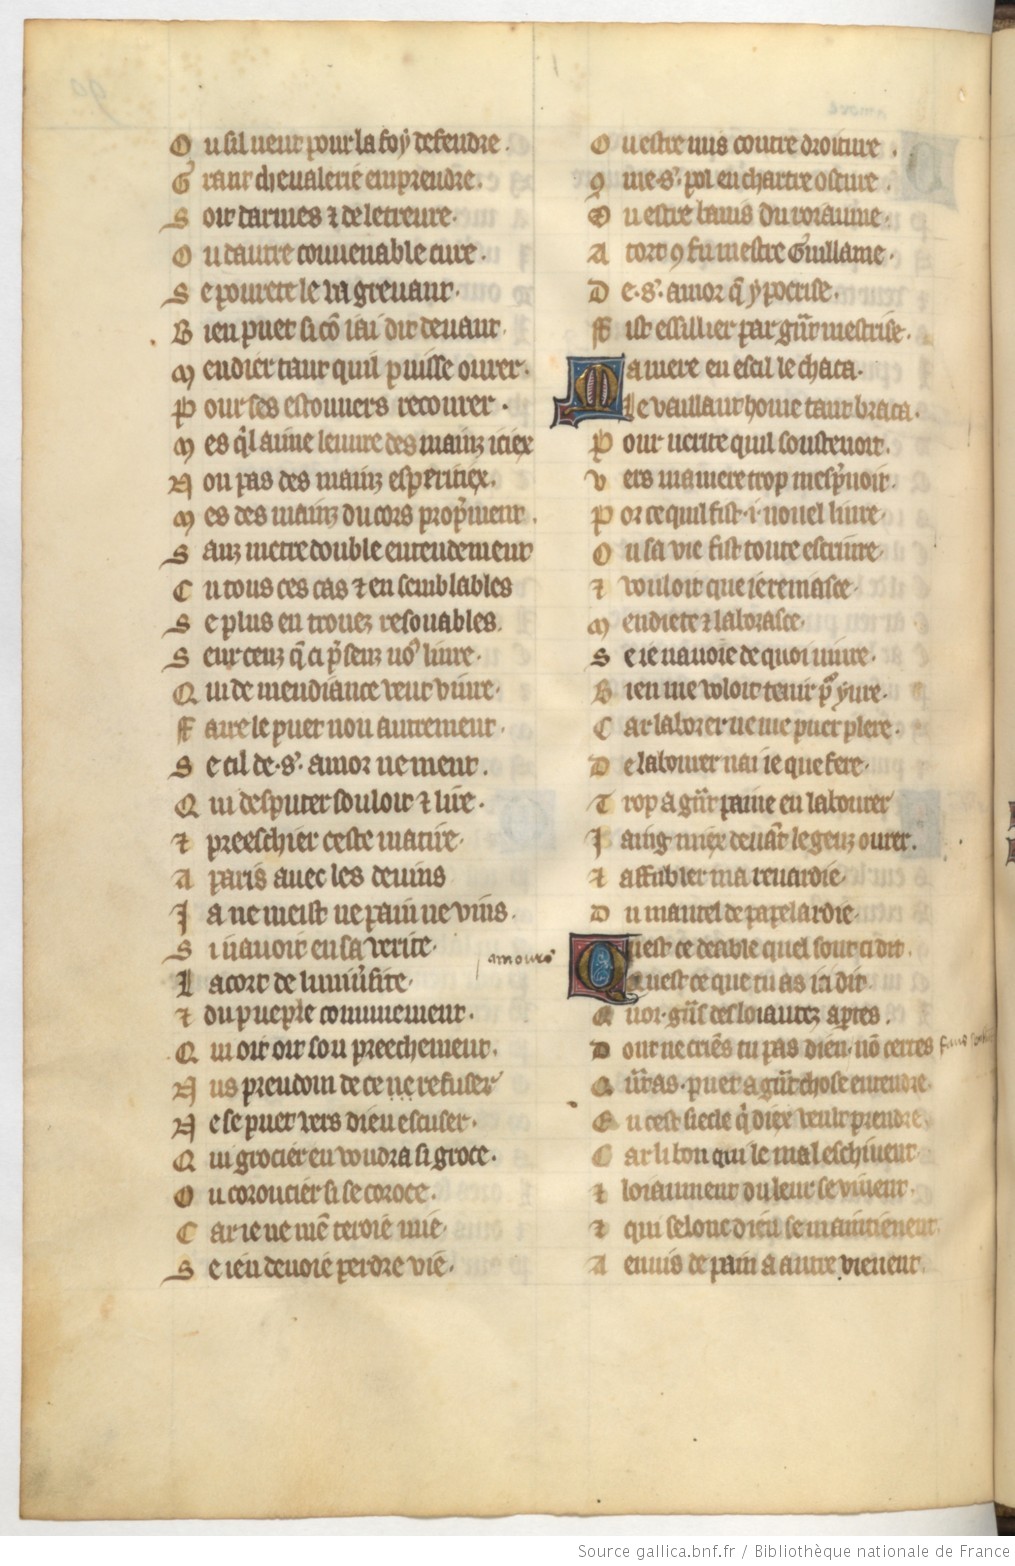 O u sil veut pour la foy defendre .
G rant chevalerie emprendre .
S oit darmes ⁊ de letreure .
O u dautre convenable cure .
S e povrete le va grevant .
B ien puet si cõ iai dit devant .
M endier tant quil puisse ovrer .
P our ses estouviers recovrer .
M es q̃l aviue leuvre des mainz itiex
N on pas des mainz esp̃ritiex .
M es des mainz du cors prop̃ment .
S anz metre double entendement
C n tous ces cas ⁊ en semblables
S e plus en trouez resonables .
S eur ceuz q̃ ci p̃senz vo⁹ livre .
Q ui de mendiance veut vivre .
F aire le puet non autrement .
S e cil de .s'. amor ne ment .
Q ui desputer souloit ⁊ lire .
⁊ preeschier ceste matire .
A paris avec les devins
J a ne meist ne pain ne vins .
S i navoit en sa verite .
L acort de luniũsite .
⁊ du pueple communement .
Q ui oit oit son preechement .
N us preudom de ce ne refuser
N e se puet vers dieu escuser .
Q ui grocier en voudra si groce .
O u coroucier si se coroce .
C ar ie ne mẽ teroie mie .
S e ien devoie perdre vie .
O u estre mis contre droiture .
9 me .s'. pol en chartre oscure .
O u estre banis du roiaume .
A tort 9 fu mestre Guillame .
D e .s'. amor q̃ ypocrise .
F ist essillier par gñt mestrise .
M a mere en escil le chaca .
L e vaillant home tant braca .
P our verite quil soustenoit .
V ers ma mere trop mesp̃noit .
P or ce quil fist .i. novel livre .
O u sa vie fist toute escrivre .
⁊ vouloit que ie remasce .
M endiete ⁊ laborasce .
S e ie navoie de quoi vivre .
B ien me voloit tenir p̃ yvre .
C ar laborer ne me puet plere .
D e labourer nai ie que fere .
T rop a gñt paine en labourer
J aing miex devãt le genz ourer .
⁊ affubler ma renardie .
D u mantel de papelardie .
Q uest ce deable quel sont ci dit .
Q uest ce que tu as ici dit .
amours
Q uoi . gñs desloiautez apertes .
D ont ne criẽs tu pas dieu . nõ certes
Q ũras . puet a gñt chose entendre .
E n cest siecle q̃ diex veult prendre .
C ar li bon qui le mal eschivent
⁊ loiaument du leur se vivent .
⁊ qui selonc dieu se maintienent .
A envis de pain a autre vienent .
Source gallica.bnf.fr / Bibliothèque nationale de France